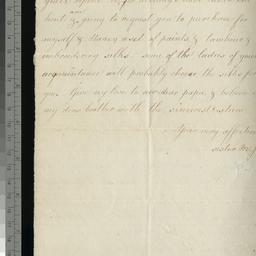 bout and & going to request you to purchase for
myself & Nancy a set of paints, & cambric &
embroidering silks - some of the ladies of your
acquaintance will probably choose the silks for
you. Give my love to our dear papa, & believe
my dear brother with the sincerest esteem
Your very affection
sister